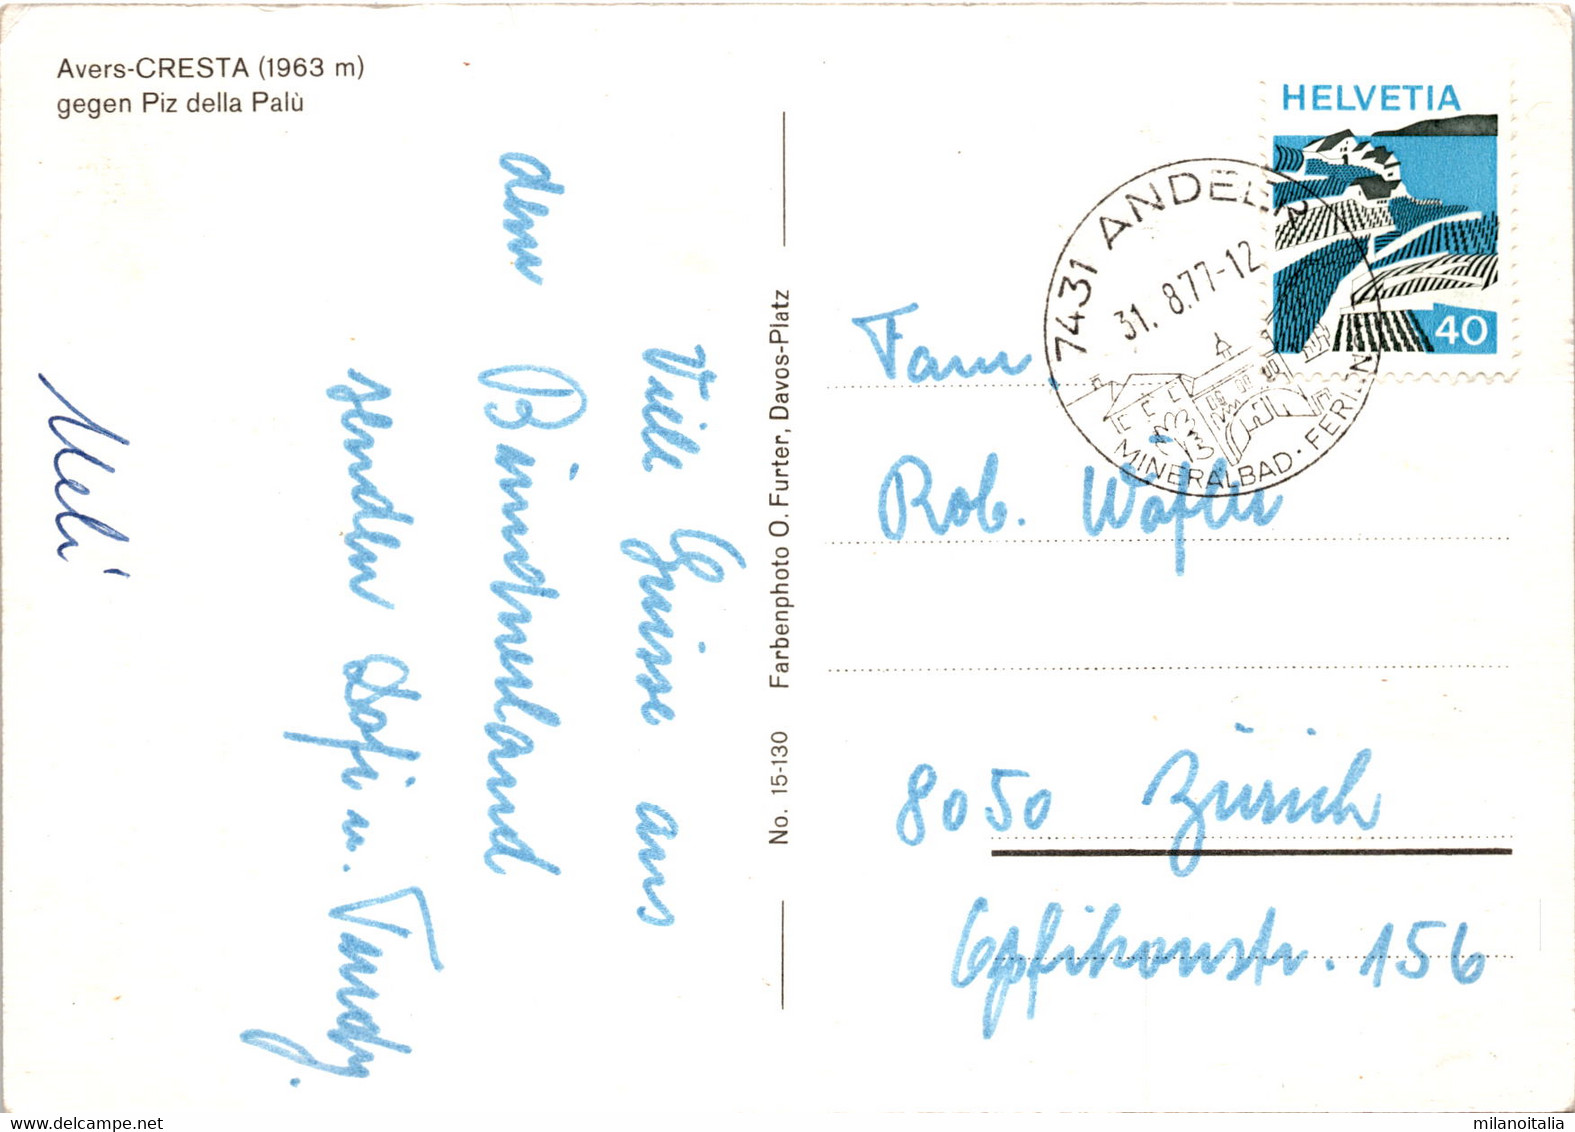 Avers-CRESTA (1963 m)
gegen Piz della Palù
Viele Grüsse aus
dem Bündnerland
senden Dofi u. Trudy.
Ueli
No. 15-130 Farbenphoto O. Furter, Davos-Platz
HELVETIA
40
7431 ANDEER
31. 8.77-12
MINERALBAD · FERIEN
Fam.
Rob. Wäfler
8050 Zürich
Opfikonstr. 156
milanoitalia